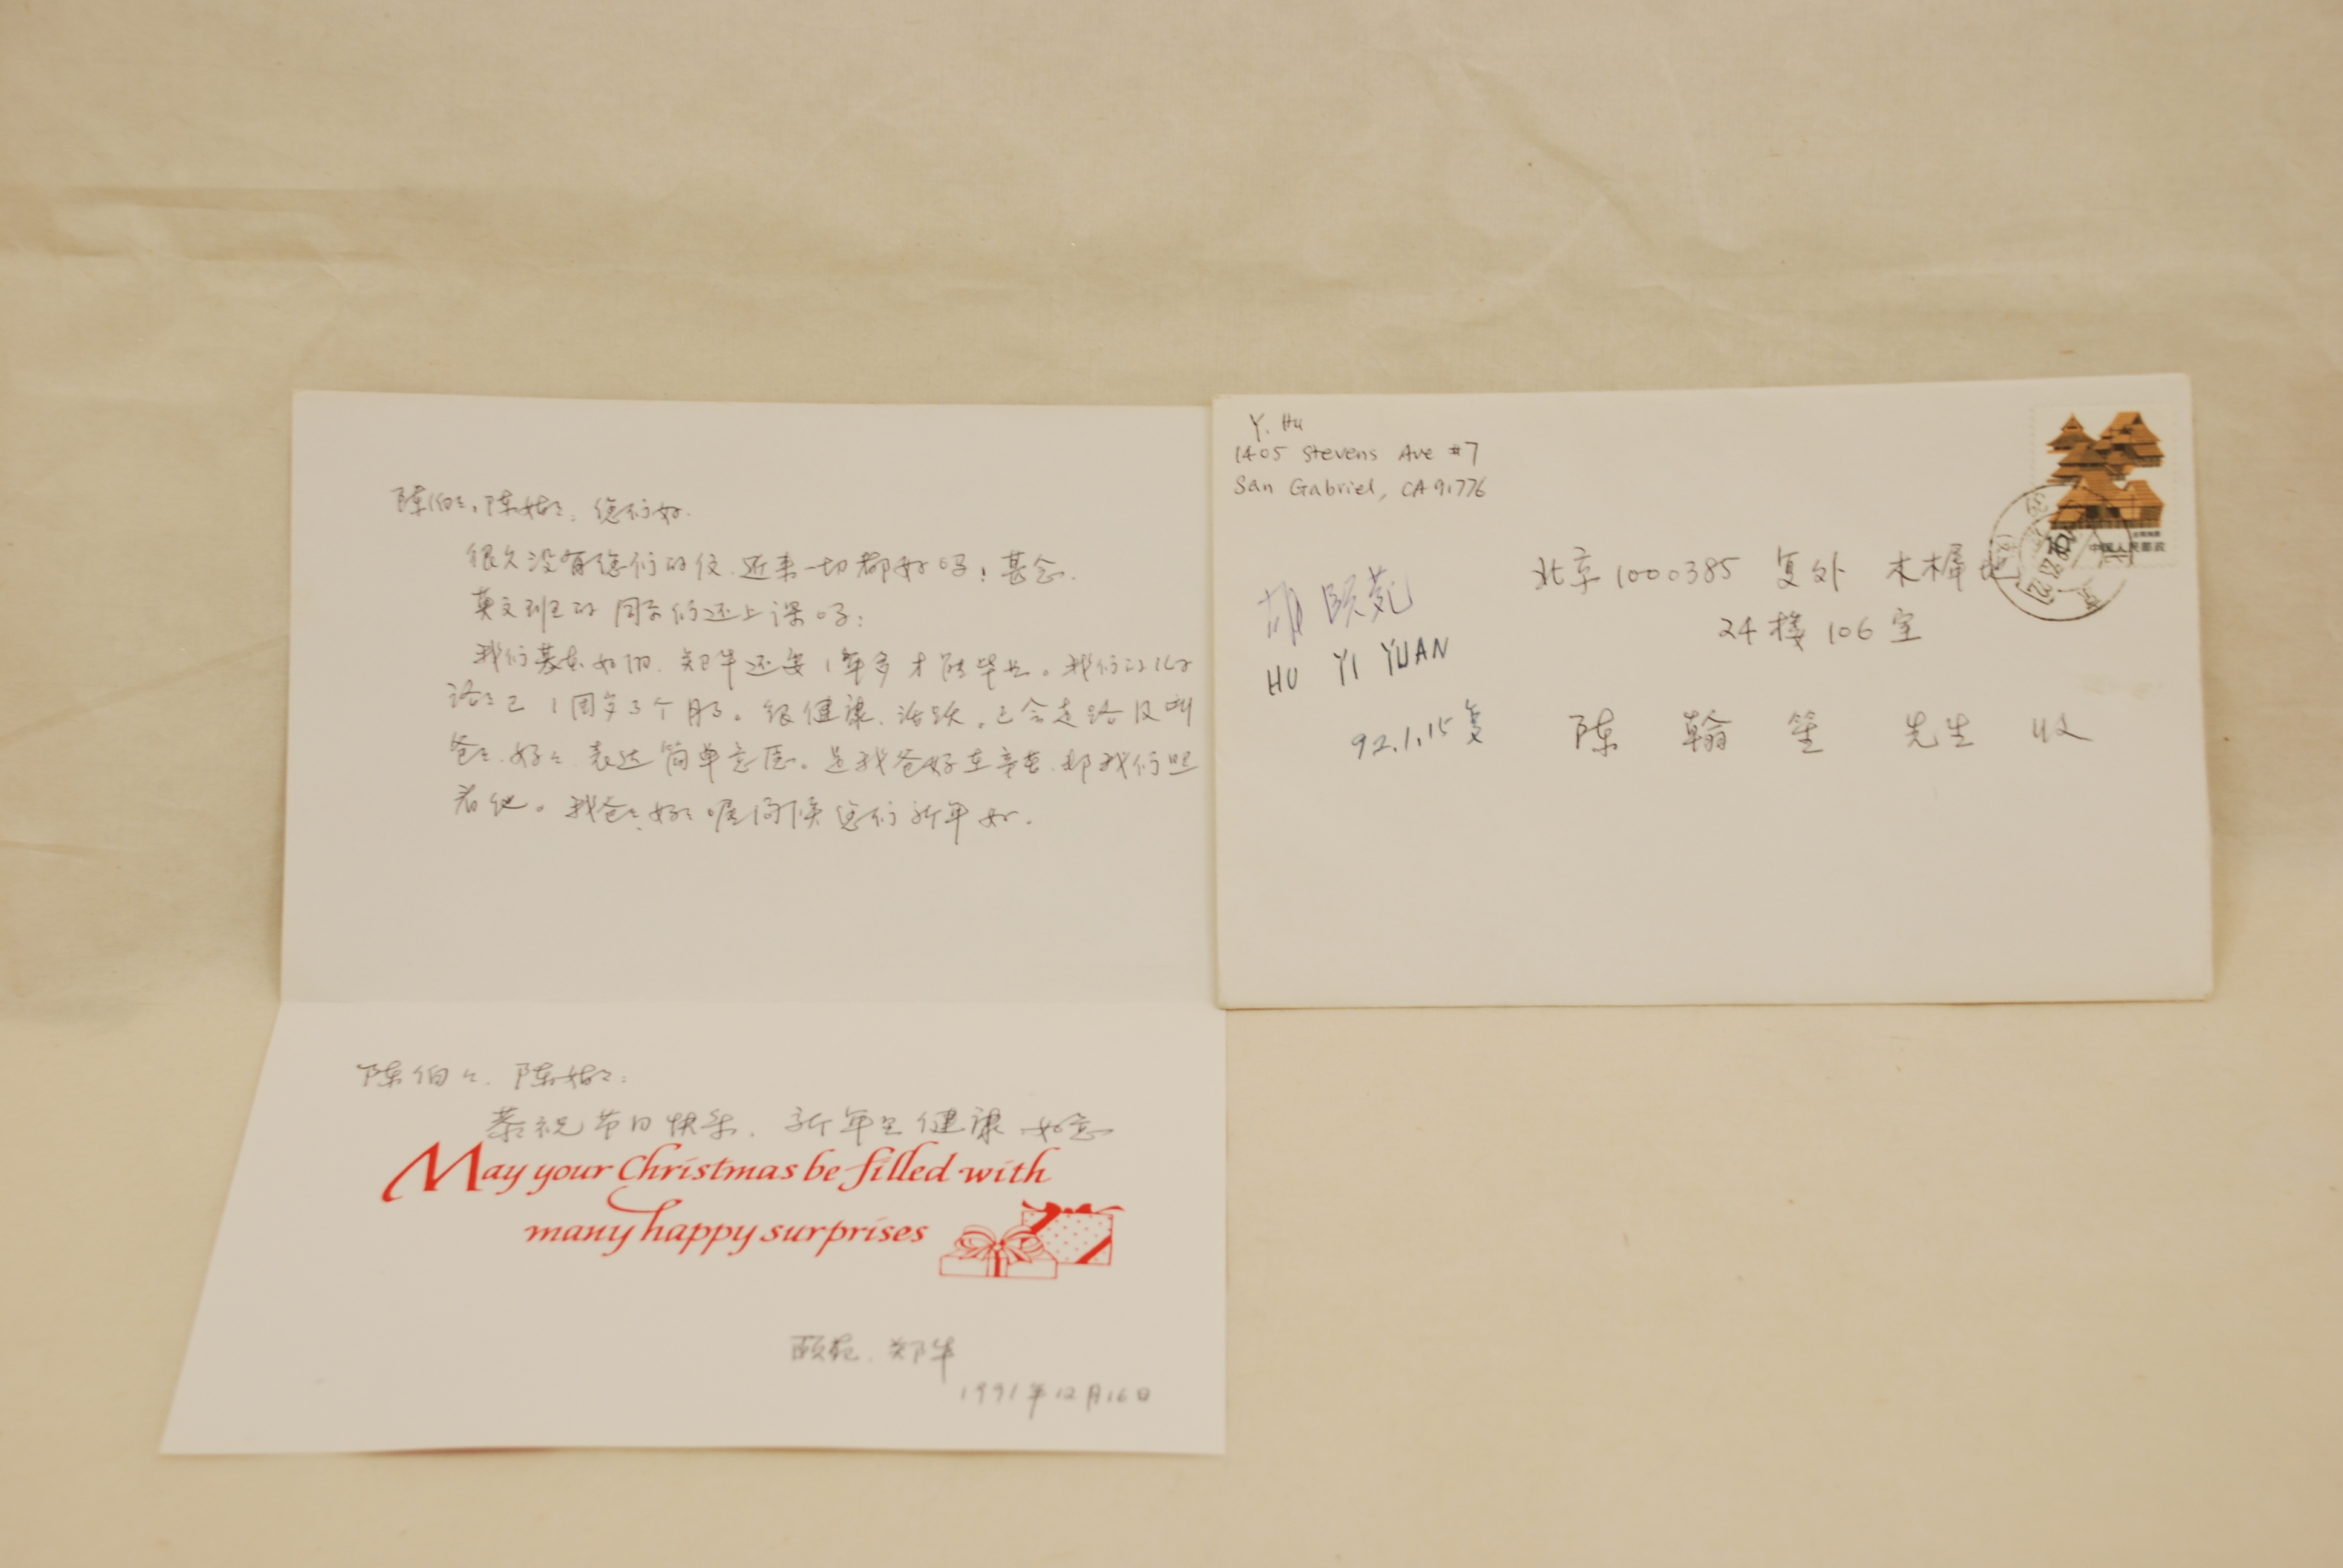 陈伯々、陈姑々：您们好.
很久没有您们的信.近来一切都好吗！甚念.
英文班的同学们还上课吗：
我们基本如旧.郑华还要1年多才能毕业。我们的儿子
己1周岁3个月了。很健康、活跃。已会走路及叫
爸々.妈々.表达简单意愿。是我爸妈在帮我们照
看他。我爸々妈々嘱问候您们新年好.
陈伯々.陈姑々：
恭祝节日快乐.新年里健康如意
May your Christmas be filled with
many happy surprises
颐苑.郑华
1991年12月16日
Y. Hu
1405 Stevens Ave #7
San Gabriel, CA 91776
北京1000385 复外 木樨地
24楼106室
胡颐苑
HU YI YUAN
92.1.15复
陈翰笙 先生 收
中国人民邮政